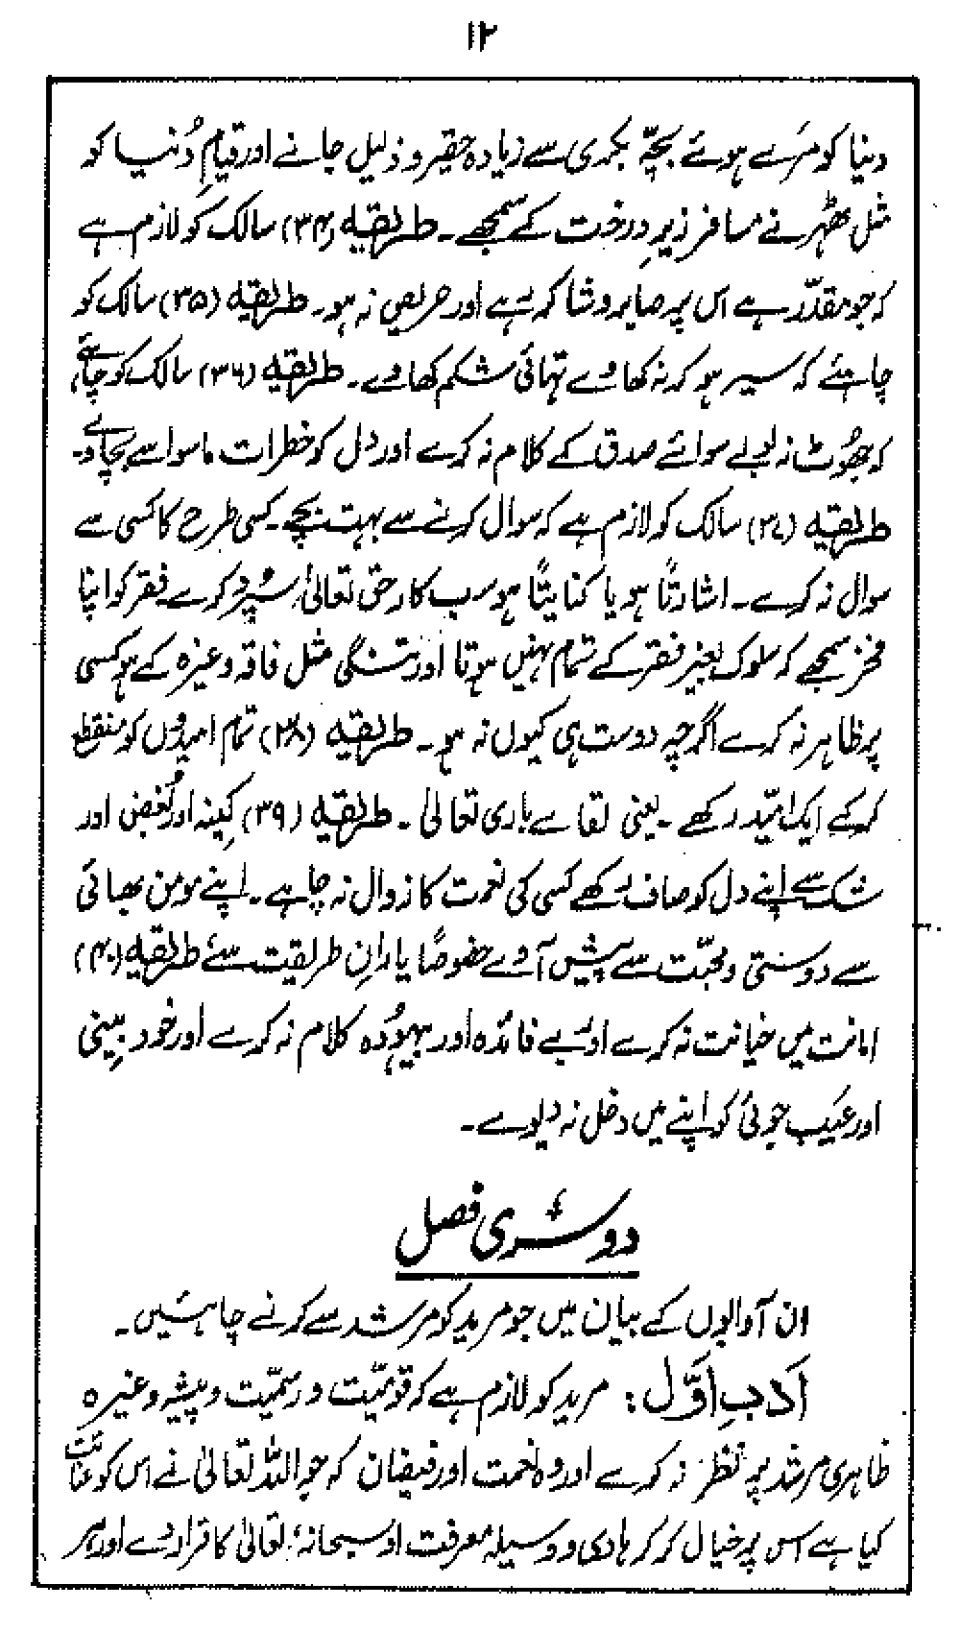 ۱۲
دنیا کو مرے ہوئے بچّہ بکری سے زیادہ حقیر و ذلیل جانے اور قیامِ دُنیا کو
مثل ٹھہرنے مسافر زیرِ درخت کے سمجھے۔ طریقیہ (۳۴) سالک کو لازم ہے
کہ جو مقدّر ہے اس پر صابر و شاکر رہے اور حریص نہ ہو۔ طریقیہ (۳۵) سالک کو
چاہئے کہ سیر ہو کر نہ کھاوے تہائی شکم کھاوے۔ طریقیہ (۳۶) سالک کو چاہئے
کہ جھُوٹ نہ بولے سوائے صدق کے کلام نہ کرے اور دل کو خطرات ماسوا سے بچاوے۔
طریقیہ (۳۷) سالک کو لازم ہے کہ سوال کرنے سے بہت بچے۔ کسی طرح کا کسی سے
سوال نہ کرے۔ اشارتًا ہو یا کنایتًا ہو سب کار حق تعالیٰ سپُرد کرے فقر کو اپنا
فخر سمجھے کہ سلوک بغیر فقر کے تمام نہیں ہوتا اور تنگی مثل فاقہ وغیرہ کے ہو کسی
پر ظاہر نہ کرے اگرچہ دوست ہی کیوں نہ ہو۔ طریقیہ (۳۸) تمام امیدوں کو منقطع
کرکے ایک امیّد رکھے۔ یعنی لقاے باری تعالیٰ۔ طریقیہ (۳۹) کینہ اور بُغض اور
شک سے اپنے دل کو صاف رکھے کسی کی نعمت کا زوال نہ چاہے۔ اپنے مومن بھائی
سے دوستی و محبّت سے پیش آوے خصوصًا یارانِ طریقیت سے طریقیہ (۴۰)
امانت میں خیانت نہ کرے اور بے فائدہ اور بیہوُدہ کلام نہ کرے اور خود بِینی
اور عیَب جوئی کو اپنے میں دخل نہ دیوے۔
دوسُری فصل
ان آدابوں کے بیان میں جو مرید کو مرشد سے کرنے چاہئیں۔
اَدبِ اوّل: مرید کو لازم ہے کہ قومیّت و رسمیّت و پیشہ وغیرہ
ظاہری مرشد پر نظر نہ کرے اور وہ نعمت اور فیضان کہ جو اللہ تعالیٰ نے اس کو عنائت
کیا ہے اس پر خیال کر کر ہادی و وسیلہ معرفت او سبحانہٗ تعالیٰ کا قرار دے اور ہر